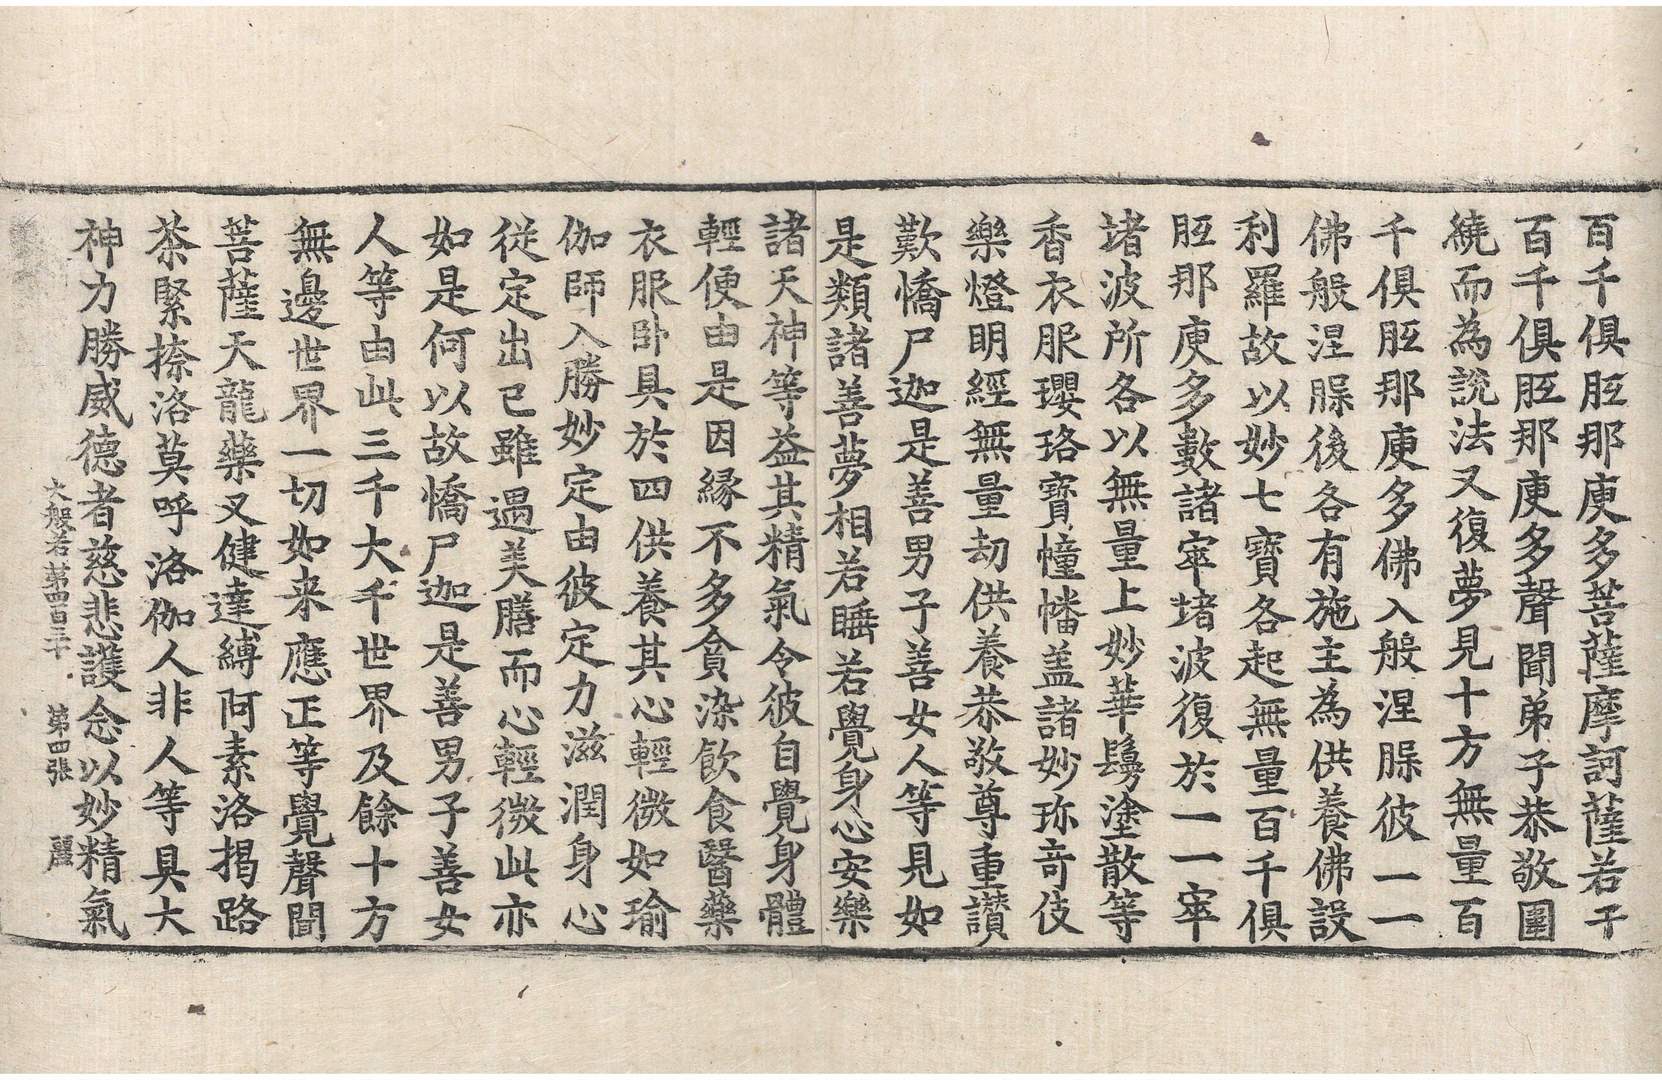 百千俱胝那庾多菩薩摩訶薩若干
百千俱胝那庾多聲聞弟子恭敬圍
繞而為說法又復夢見十方無量百
千俱胝那庾多佛入般涅槃彼一一
佛般涅槃後各有施主為供養佛設
利羅故以妙七寶各起無量百千俱
胝那庾多數諸窣堵波復於一一窣
堵波所各以無量上妙華鬘塗散等
香衣服瓔珞寶幢幡盖諸妙珎奇伎
樂燈明經無量劫供養恭敬尊重讚
歎憍尸迦是善男子善女人等見如
是類諸善夢相若睡若覺身心安樂
諸天神等益其精氣令彼自覺身體
輕便由是因緣不多貪染飲食醫藥
衣服卧具於四供養其心輕微如瑜
伽師入勝妙定由彼定力滋潤身心
從定出已雖遇美膳而心輕微此亦
如是何以故憍尸迦是善男子善女
人等由此三千大千世界及餘十方
無邊世界一切如来應正等覺聲聞
菩薩天龍藥叉健達縛阿素洛揭路
荼緊捺洛莫呼洛伽人非人等具大
神力勝威德者慈悲護念以妙精氣
大般若第四百三十 第四張 麗